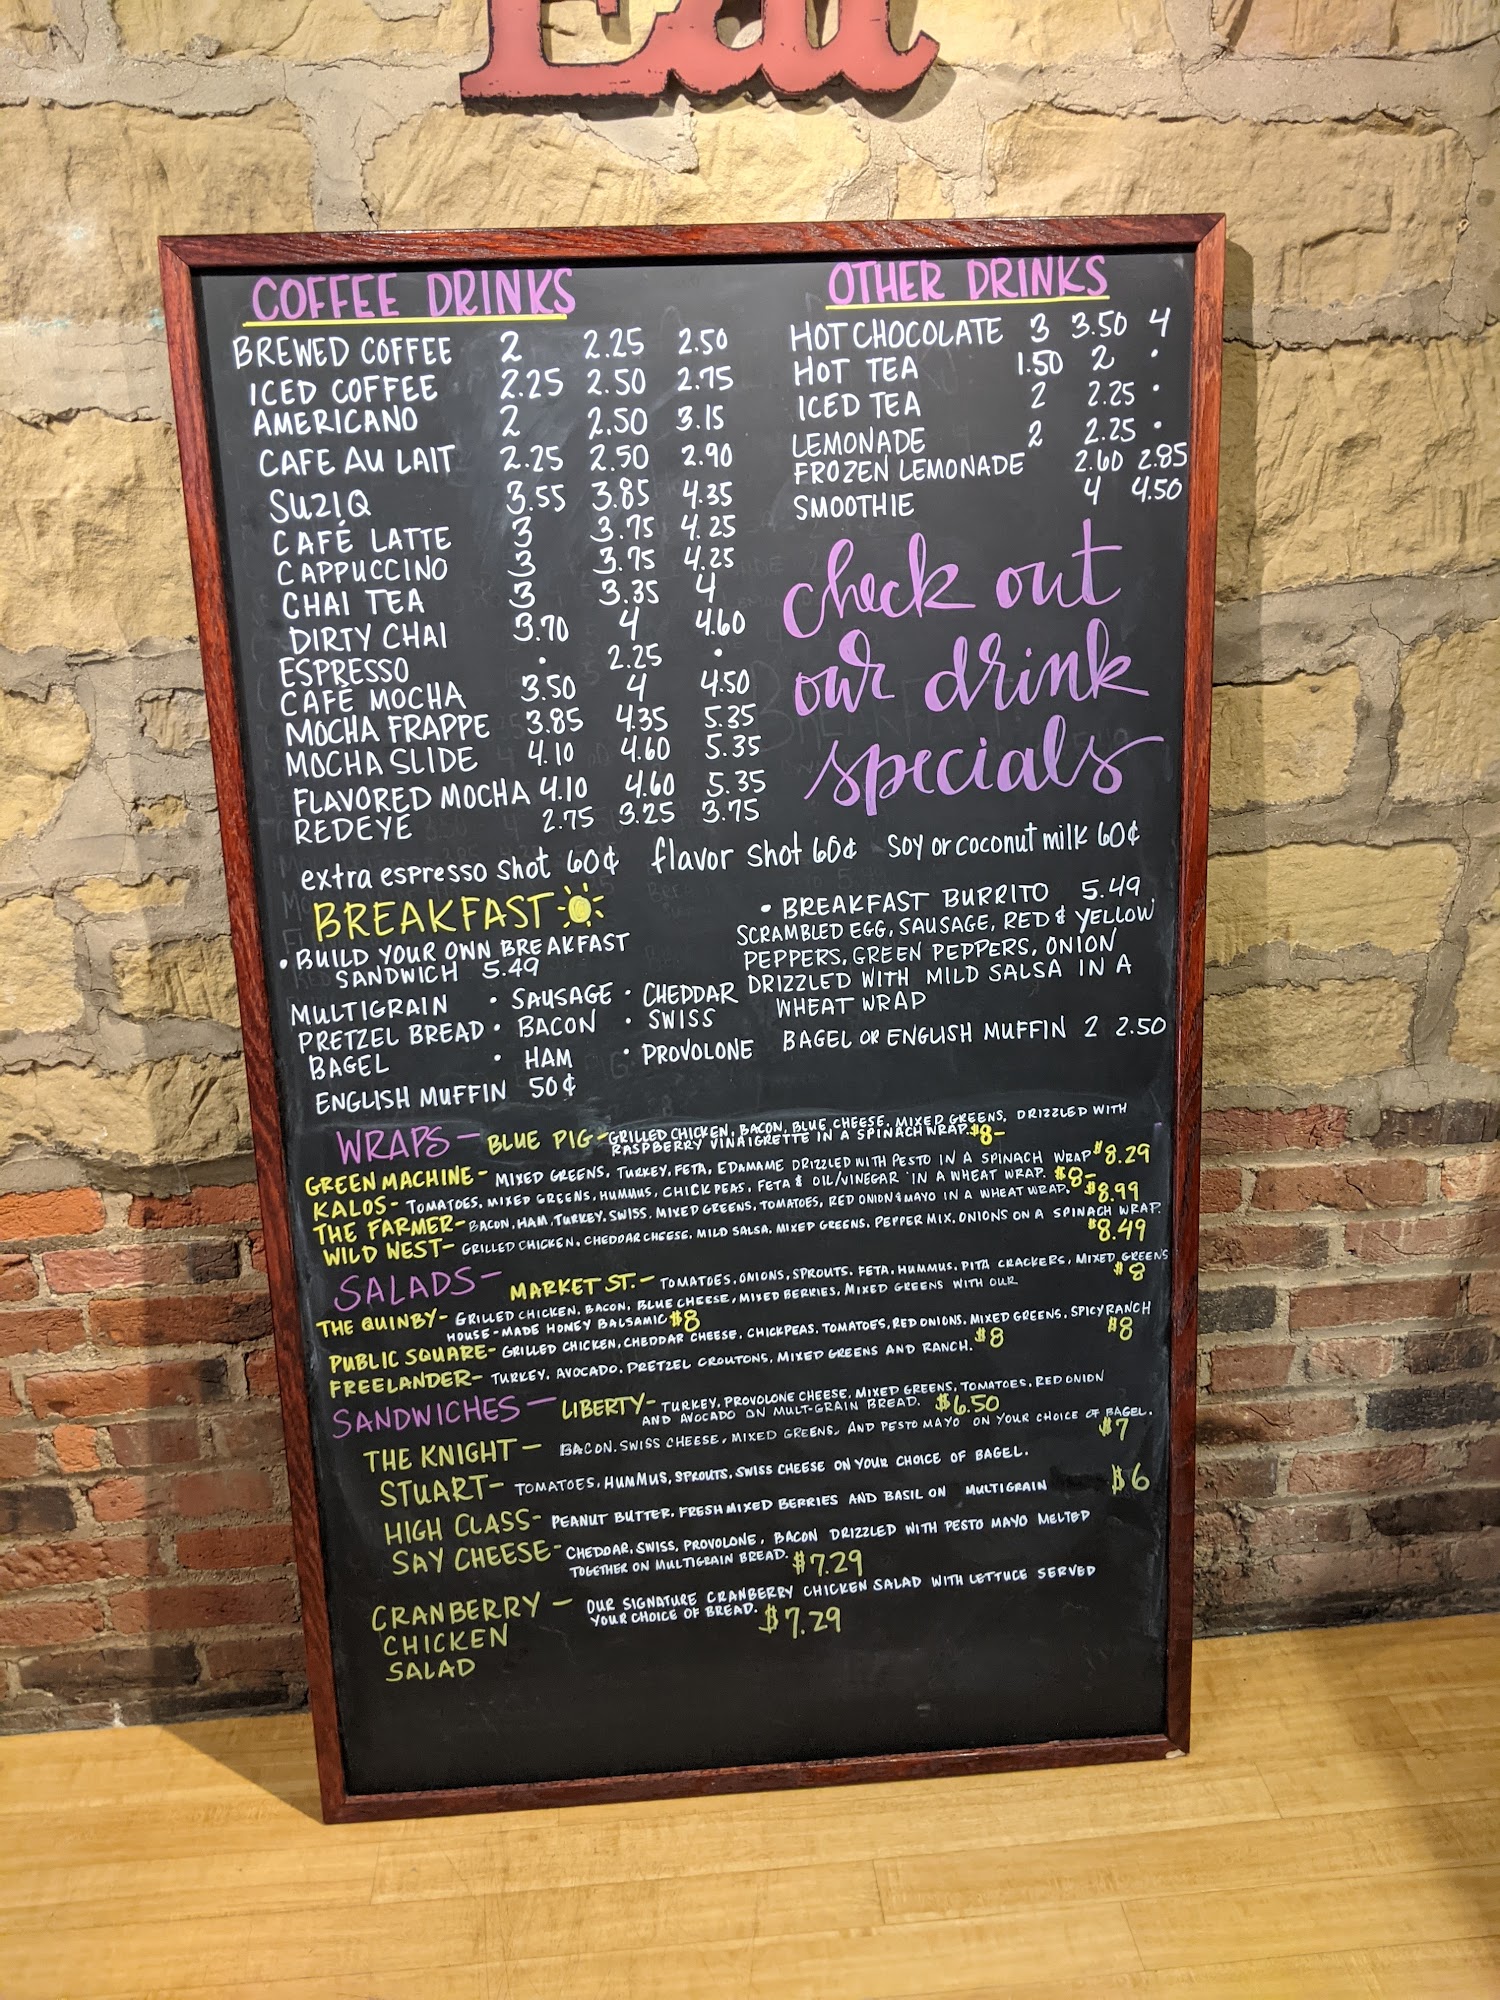 Eat
COFFEE DRINKS
BREWED COFFEE 2 2.25 2.50
ICED COFFEE 2.25 2.50 2.75
AMERICANO 2 2.50 3.15
CAFE AU LAIT 2.25 2.50 2.90
SUZIQ 3.55 3.85 4.35
CAFÉ LATTE 3 3.75 4.25
CAPPUCCINO 3 3.75 4.25
CHAI TEA 3 3.35 4
DIRTY CHAI 3.70 4 4.60
ESPRESSO • 2.25 •
CAFÉ MOCHA 3.50 4 4.50
MOCHA FRAPPE 3.85 4.35 5.35
MOCHA SLIDE 4.10 4.60 5.35
FLAVORED MOCHA 4.10 4.60 5.35
REDEYE 2.75 3.25 3.75
OTHER DRINKS
HOT CHOCOLATE 3 3.50 4
HOT TEA 1.50 2 •
ICED TEA 2 2.25 •
LEMONADE 2 2.25 •
FROZEN LEMONADE 2.60 2.85
SMOOTHIE 4 4.50
check out
our drink
specials
extra espresso shot 60¢ flavor shot 60¢ soy or coconut milk 60¢
BREAKFAST
• BUILD YOUR OWN BREAKFAST
SANDWICH 5.49
MULTIGRAIN • SAUSAGE • CHEDDAR
PRETZEL BREAD • BACON • SWISS
BAGEL • HAM • PROVOLONE
ENGLISH MUFFIN 50¢
• BREAKFAST BURRITO 5.49
SCRAMBLED EGG, SAUSAGE, RED & YELLOW
PEPPERS, GREEN PEPPERS, ONION
DRIZZLED WITH MILD SALSA IN A
WHEAT WRAP
BAGEL OR ENGLISH MUFFIN 2 2.50
WRAPS - BLUE PIG - GRILLED CHICKEN, BACON, BLUE CHEESE, MIXED GREENS, DRIZZLED WITH
RASPBERRY VINAIGRETTE IN A SPINACH WRAP. $8-
GREEN MACHINE - MIXED GREENS, TURKEY, FETA, EDAMAME DRIZZLED WITH PESTO IN A SPINACH WRAP $8.29
KALOS - TOMATOES, MIXED GREENS, HUMMUS, CHICK PEAS, FETA & OIL/VINEGAR IN A WHEAT WRAP. $8-
THE FARMER - BACON, HAM, TURKEY, SWISS, MIXED GREENS, TOMATOES, RED ONION & MAYO IN A WHEAT WRAP. $8.99
WILD WEST - GRILLED CHICKEN, CHEDDAR CHEESE, MILD SALSA, MIXED GREENS, PEPPER MIX, ONIONS ON A SPINACH WRAP.
$8.49
SALADS - MARKET ST. - TOMATOES, ONIONS, SPROUTS, FETA, HUMMUS, PITA CRACKERS, MIXED GREENS
$8
THE QUINBY - GRILLED CHICKEN, BACON, BLUE CHEESE, MIXED BERRIES, MIXED GREENS WITH OUR
HOUSE-MADE HONEY BALSAMIC $8
PUBLIC SQUARE - GRILLED CHICKEN, CHEDDAR CHEESE, CHICKPEAS, TOMATOES, RED ONIONS, MIXED GREENS, SPICY RANCH
$8
FREELANDER - TURKEY, AVOCADO, PRETZEL CROUTONS, MIXED GREENS AND RANCH. $8
SANDWICHES - LIBERTY - TURKEY, PROVOLONE CHEESE, MIXED GREENS, TOMATOES, RED ONION
AND AVOCADO ON MULT-GRAIN BREAD. $6.50
THE KNIGHT - BACON, SWISS CHEESE, MIXED GREENS, AND PESTO MAYO ON YOUR CHOICE OF BAGEL.
$7
STUART - TOMATOES, HUMMUS, SPROUTS, SWISS CHEESE ON YOUR CHOICE OF BAGEL.
HIGH CLASS - PEANUT BUTTER, FRESH MIXED BERRIES AND BASIL ON MULTIGRAIN $6
SAY CHEESE - CHEDDAR, SWISS, PROVOLONE, BACON DRIZZLED WITH PESTO MAYO MELTED
TOGETHER ON MULTIGRAIN BREAD. $7.29
CRANBERRY - OUR SIGNATURE CRANBERRY CHICKEN SALAD WITH LETTUCE SERVED
CHICKEN YOUR CHOICE OF BREAD. $7.29
SALAD